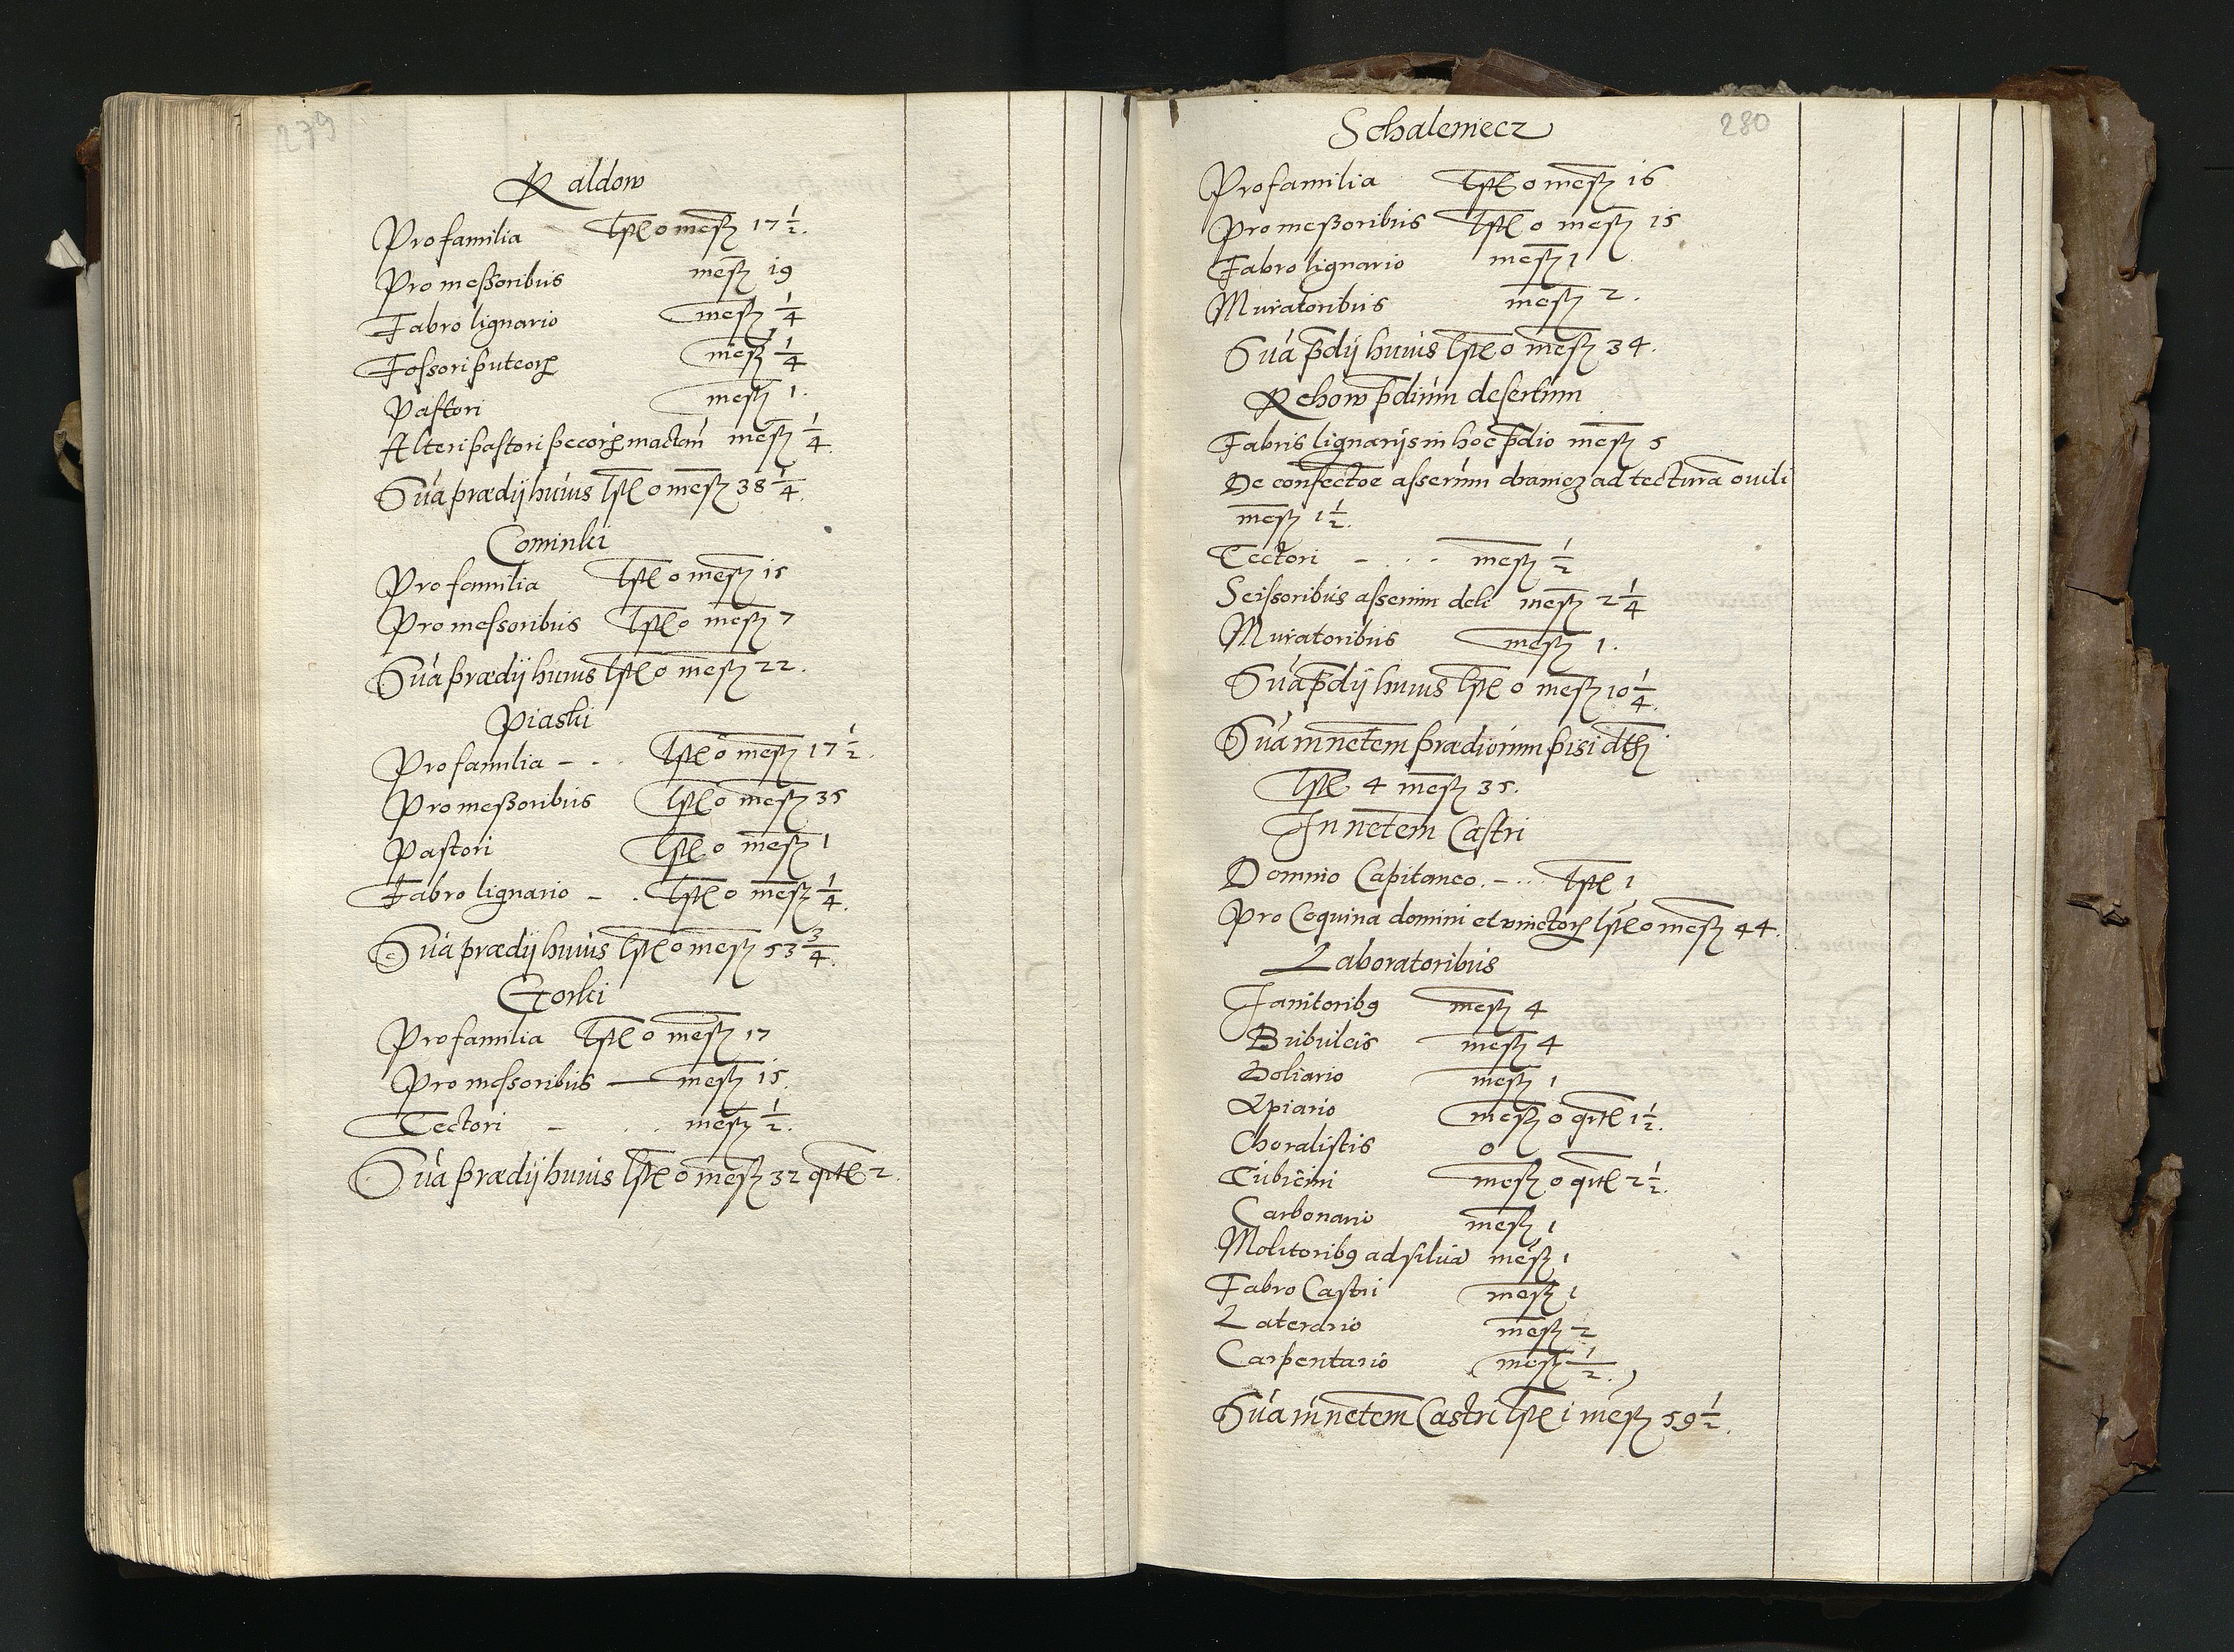 279
Raldow
Pro familia lſtl 0 meſz 17 1/2.
Pro meßoribus meſz 19
Fabro lignario meſz 1/4
Foſsori puteorꝝ meſz 1/4
Paſtori meſz 1.
Alteri paſtori pecorꝝ mactan̄ meſz 1/4.
Sūa prædij huius lſtl 0 meſz 38 1/4.
Cominki
Pro familia lſtl 0 meſz 15
Pro meſsoribus lſtl 0 meſz 7
Sūa prædij huius lſtl 0 meſz 22.
Piaski
Pro familia – . . lſtl 0 meſz 17 1/2.
Pro meßoribus lſtl 0 meſz 35
Paſtori lſtl 0 meſz 1
Fabro lignario – . lſtl 0 meſz 1/4.
Sūa prædij huius lſtl 0 meſz 53 3/4.
Gorki
Pro familia lſtl 0 meſz 17
Pro meſsoribus — meſz 15.
Tectori – . . meſz 1/2.
Sūa prædij huius lſtl 0 meſz 32 qrtl 2.
280
Schaleniecz
Pro familia lſtl 0 meſz 16
Pro meßoribus lſtl 0 meſz 15
Fabro lignario meſz 1
Muratoribus meſz 2.
Sūa p̄dij huius lſtl 0 meſz 34.
Rchow p̄dium deſertum
Fabris lignarijs in hoc p̄dio meſz 5
De confectōe aſserum dranicz ad tecturā ouili
meſz 1 1/2.
Tectori – . . . meſz 1/2
Sciſsoribus aſserum deli meſz 2 1/4
Muratoribus meſz 1.
Sūa p̄dij huius lſtl 0 meſz 10 1/4.
Sūa in n̄c̄tem prædiorum piſi
lſtl 4 meſz 35.
In n̄c̄tem Caſtri
Domino Capitaneo. – . . . lſtl 1
Pro Coquina domini et vinctorꝝ lſtl 0 meſz 44.
Laboratoribus
Janitoribꝰ meſz 4
Bubulcis meſz 4
Doliario meſz 1
Apiario meſz 0 qrtl 1 1/2.
Choraliſtis 0
Tubicini meſz 0 qrtl 2 1/2.
Carbonario meſz 1
Molitoribꝰ ad ſiluā meſz 1
Fabro Caſtri meſz 1
Laterario meſz 2
Carpentario meſz 1/2.
Sūa in n̄c̄tem Caſtri lſtl 1 meſz 59 1/2.